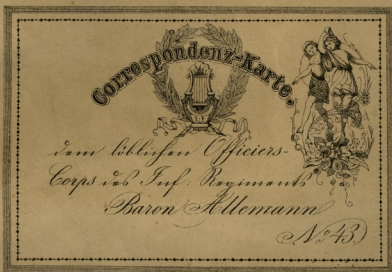 Correspondenz-Karte.
dem löblichen Officiers-
Corps des Inf: Regiments
Baron Allemann
No. 43.)